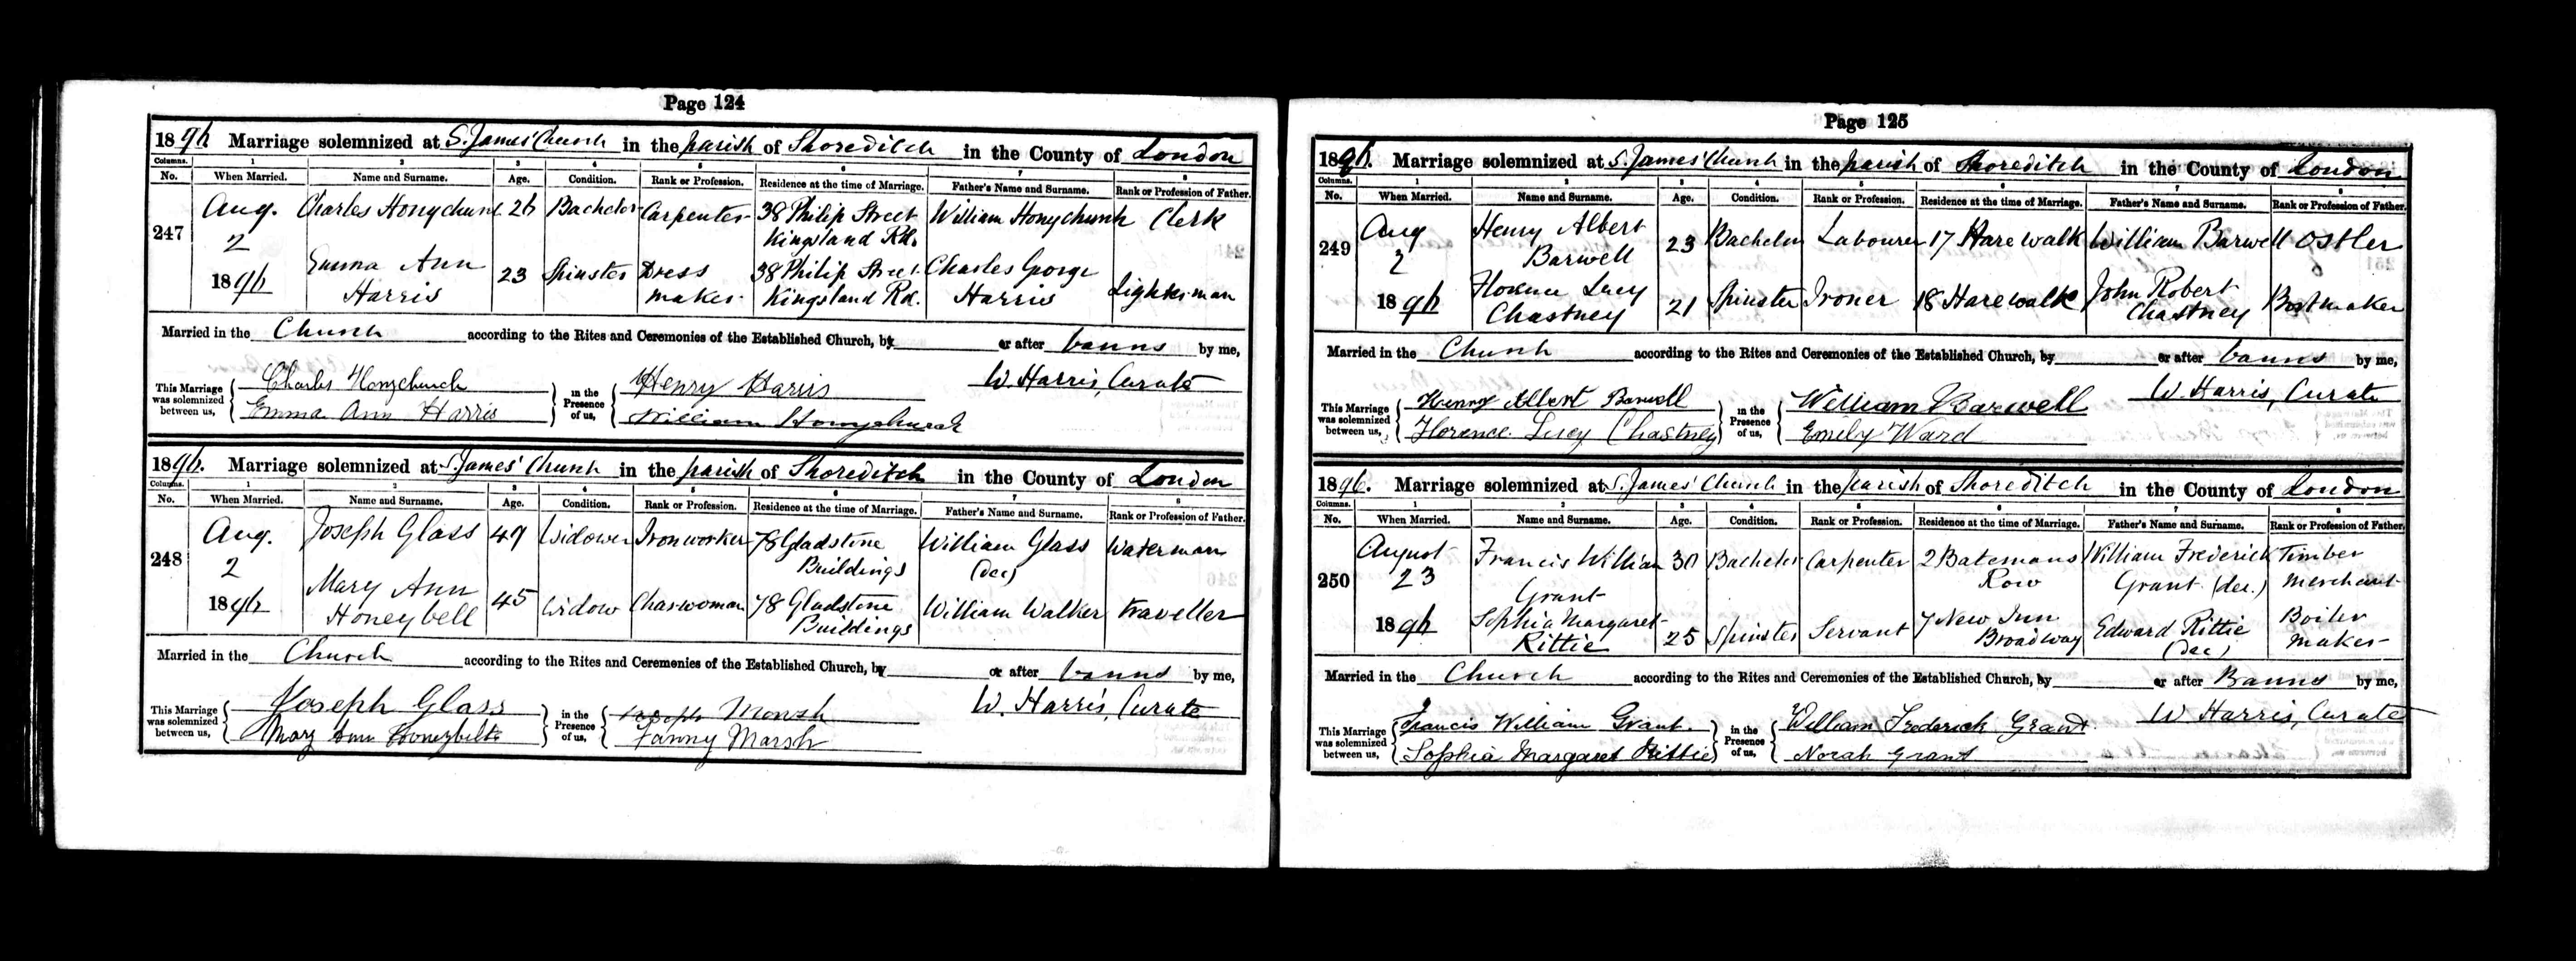 Page 124
1896 Marriage solemnized at S. James' Church in the parish of Shoreditch in the County of London
Columns. 1 2 3 4 5 6 7 8
No. When Married. Name and Surname. Age. Condition. Rank or Profession. Residence at the time of Marriage. Father's Name and Surname. Rank or Profession of Father.
247 Aug. 2 1896
Charles Honychurch 26 Bachelor Carpenter 38 Philip Street Kingsland Rd. William Honychurch Clerk
Emma Ann Harris 23 Spinster Dress maker 38 Philip Street Kingsland Rd. Charles George Harris Lighterman
Married in the Church according to the Rites and Ceremonies of the Established Church, by or after banns by me,
W. Harris, Curate
This Marriage was solemnized between us, Charles Honychurch
Emma Ann Harris
in the Presence of us, Henry Harris
William Honychurch
1896. Marriage solemnized at S. James' Church in the parish of Shoreditch in the County of London
Columns. 1 2 3 4 5 6 7 8
No. When Married. Name and Surname. Age. Condition. Rank or Profession. Residence at the time of Marriage. Father's Name and Surname. Rank or Profession of Father.
248 Aug. 2 1896
Joseph Glass 49 Widower Ironworker 78 Gladstone Buildings William Glass (dec) Waterman
Mary Ann Honeybell 45 Widow Charwoman 78 Gladstone Buildings William Walker traveller
Married in the Church according to the Rites and Ceremonies of the Established Church, by or after banns by me,
W. Harris, Curate
This Marriage was solemnized between us, Joseph Glass
Mary Ann
in the Presence of us, Joseph
Fanny Marsh
Page 125
1896. Marriage solemnized at S. James' Church in the parish of Shoreditch in the County of London
Columns. 1 2 3 4 5 6 7 8
No. When Married. Name and Surname. Age. Condition. Rank or Profession. Residence at the time of Marriage. Father's Name and Surname. Rank or Profession of Father.
249 Aug 2 1896
Henry Albert Barwell 23 Bachelor Labourer 17 Hare walk William Barwell Ostler
Florence Lucy Chastney 21 Spinster Ironer 18 Hare walk John Robert Chastney Bootmaker
Married in the Church according to the Rites and Ceremonies of the Established Church, by or after banns by me,
W. Harris, Curate
This Marriage was solemnized between us, Henry Albert Barwell
Florence Lucy Chastney
in the Presence of us, William Barwell
Emily Ward
1896. Marriage solemnized at S. James' Church in the parish of Shoreditch in the County of London
Columns. 1 2 3 4 5 6 7 8
No. When Married. Name and Surname. Age. Condition. Rank or Profession. Residence at the time of Marriage. Father's Name and Surname. Rank or Profession of Father.
250 August 23 1896
Francis William Grant 30 Bachelor Carpenter 2 Batemans Row William Frederick Grant (dec.) Timber Merchant
Sophia Margaret Rittie 25 Spinster Servant 7 New Inn Broadway Edward Rittie (dec) Boiler maker
Married in the Church according to the Rites and Ceremonies of the Established Church, by or after Banns by me,
W Harris, Curate
This Marriage was solemnized between us, Francis William Grant.
Sophia Margaret Rittie
in the Presence of us, William Frederick Grant.
Norah Grant